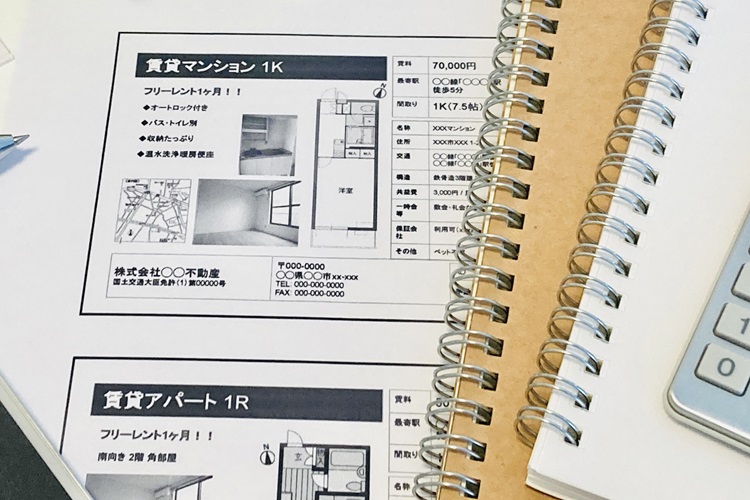 賃貸マンション 1K
フリーレント1ヶ月！！
◆オートロック付き
◆バス・トイレ別
◆収納たっぷり
◆温水洗浄暖房便座
洋室
賃料 70,000円
最寄駅 〇〇線「〇〇〇 駅
徒歩5分
間取り 1K(7.5帖)
名称 XXXマンション
住所 XXX市XXX 1-
交通 〇〇線「〇〇
〇〇線「〇〇
構造 鉄骨造3階
共益費 3,000円/
一時金等 敷金・礼金
保証会社 利用可
その他 ペット
株式会社〇〇不動産
国土交通大臣免許(1)第00000号
〒000-0000
〇〇県〇〇市xx-xxx
TEL: 000-000-0000
FAX: 000-000-0000
賃貸アパート 1R
フリーレント1ヶ月！！
南向き 2階 角部屋
N
玄
賃料
最寄駅
間取り
名称
1
0